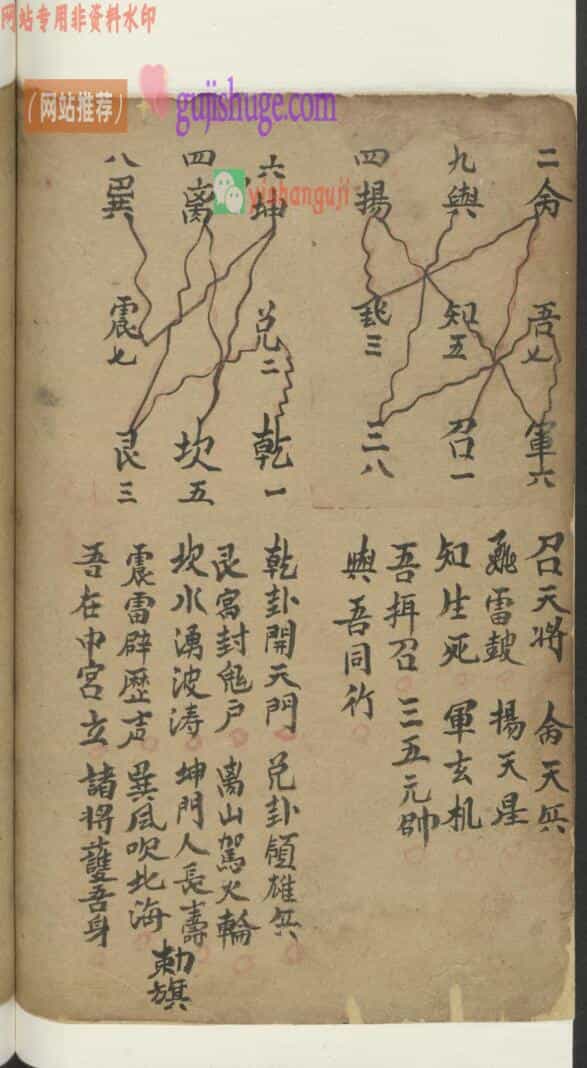 网站专用非资料水印
(网站推荐)
gujishuge.com
yishanguji
二
吾七
軍六
九與
知五
召一
四揚
三
三八
六坤
兑二
乾一
四离
坎五
八巽
震七
艮三
召天將 天兵
雷皷 揚天星
知生死 軍玄机
吾揖召 三五元帥
與吾同行
乾卦開天門 兑卦領雄兵
艮宫封鬼户 离山駕火輪
坎水湧波涛 坤門人長壽
震雷辟歷声 巽风吹北海
吾在中宮立 諸將護吾身
勅旗